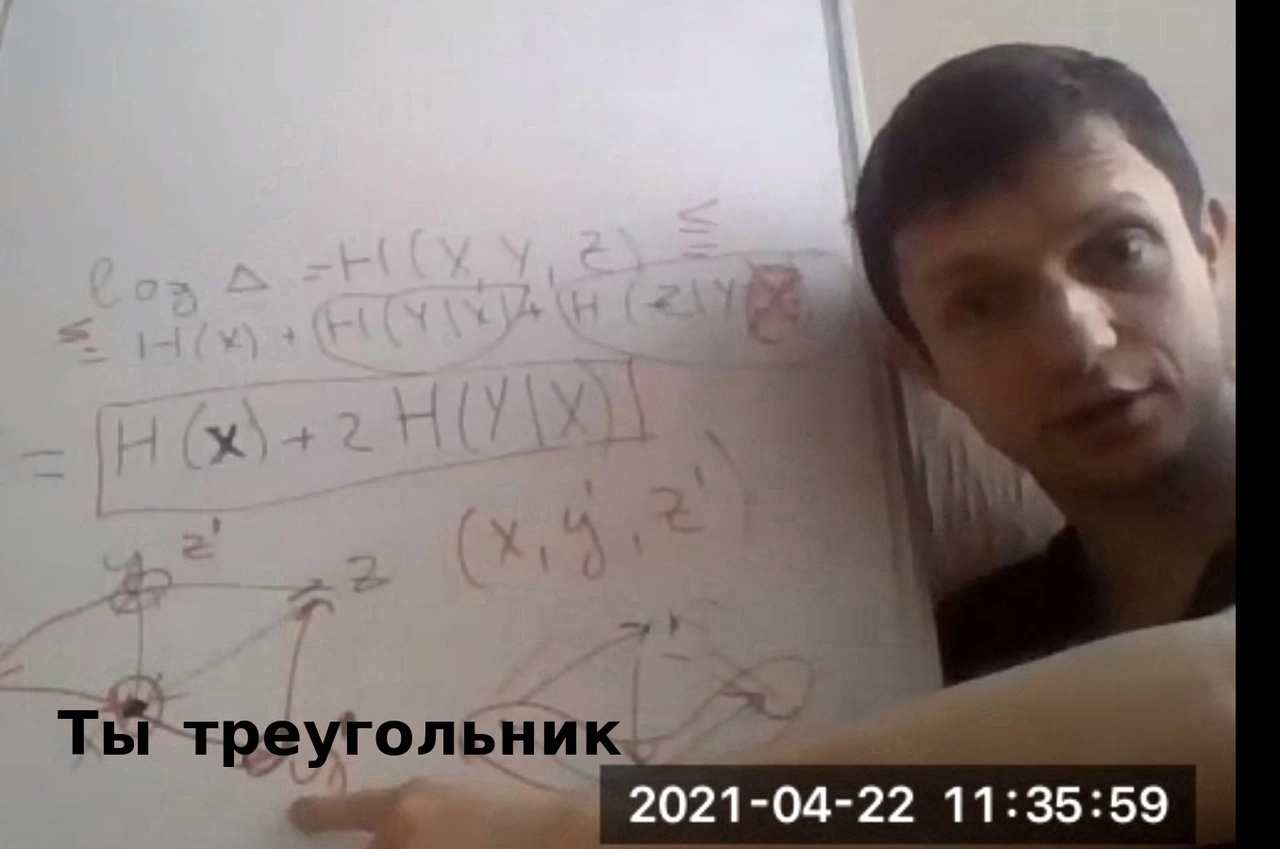 log Δ = H(X, Y, Z) ≤
≤ H(X) + H(Y|X) + H(Z|Y
= H(X) + 2 H(Y|X)
z'
y z (x, y', z')
Ты треугольник
2021-04-22 11:35:59